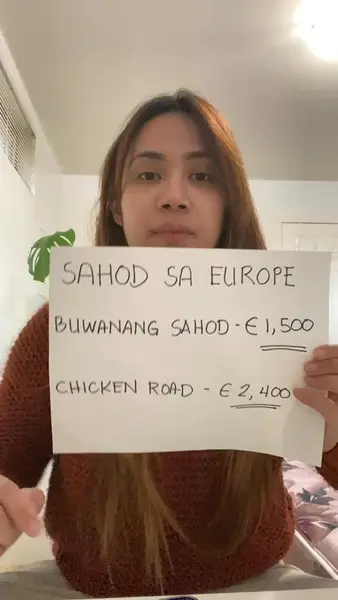 SAHOD SA EUROPE
BUWANANG SAHOD - € 1,500
CHICKEN ROAD - € 2,400